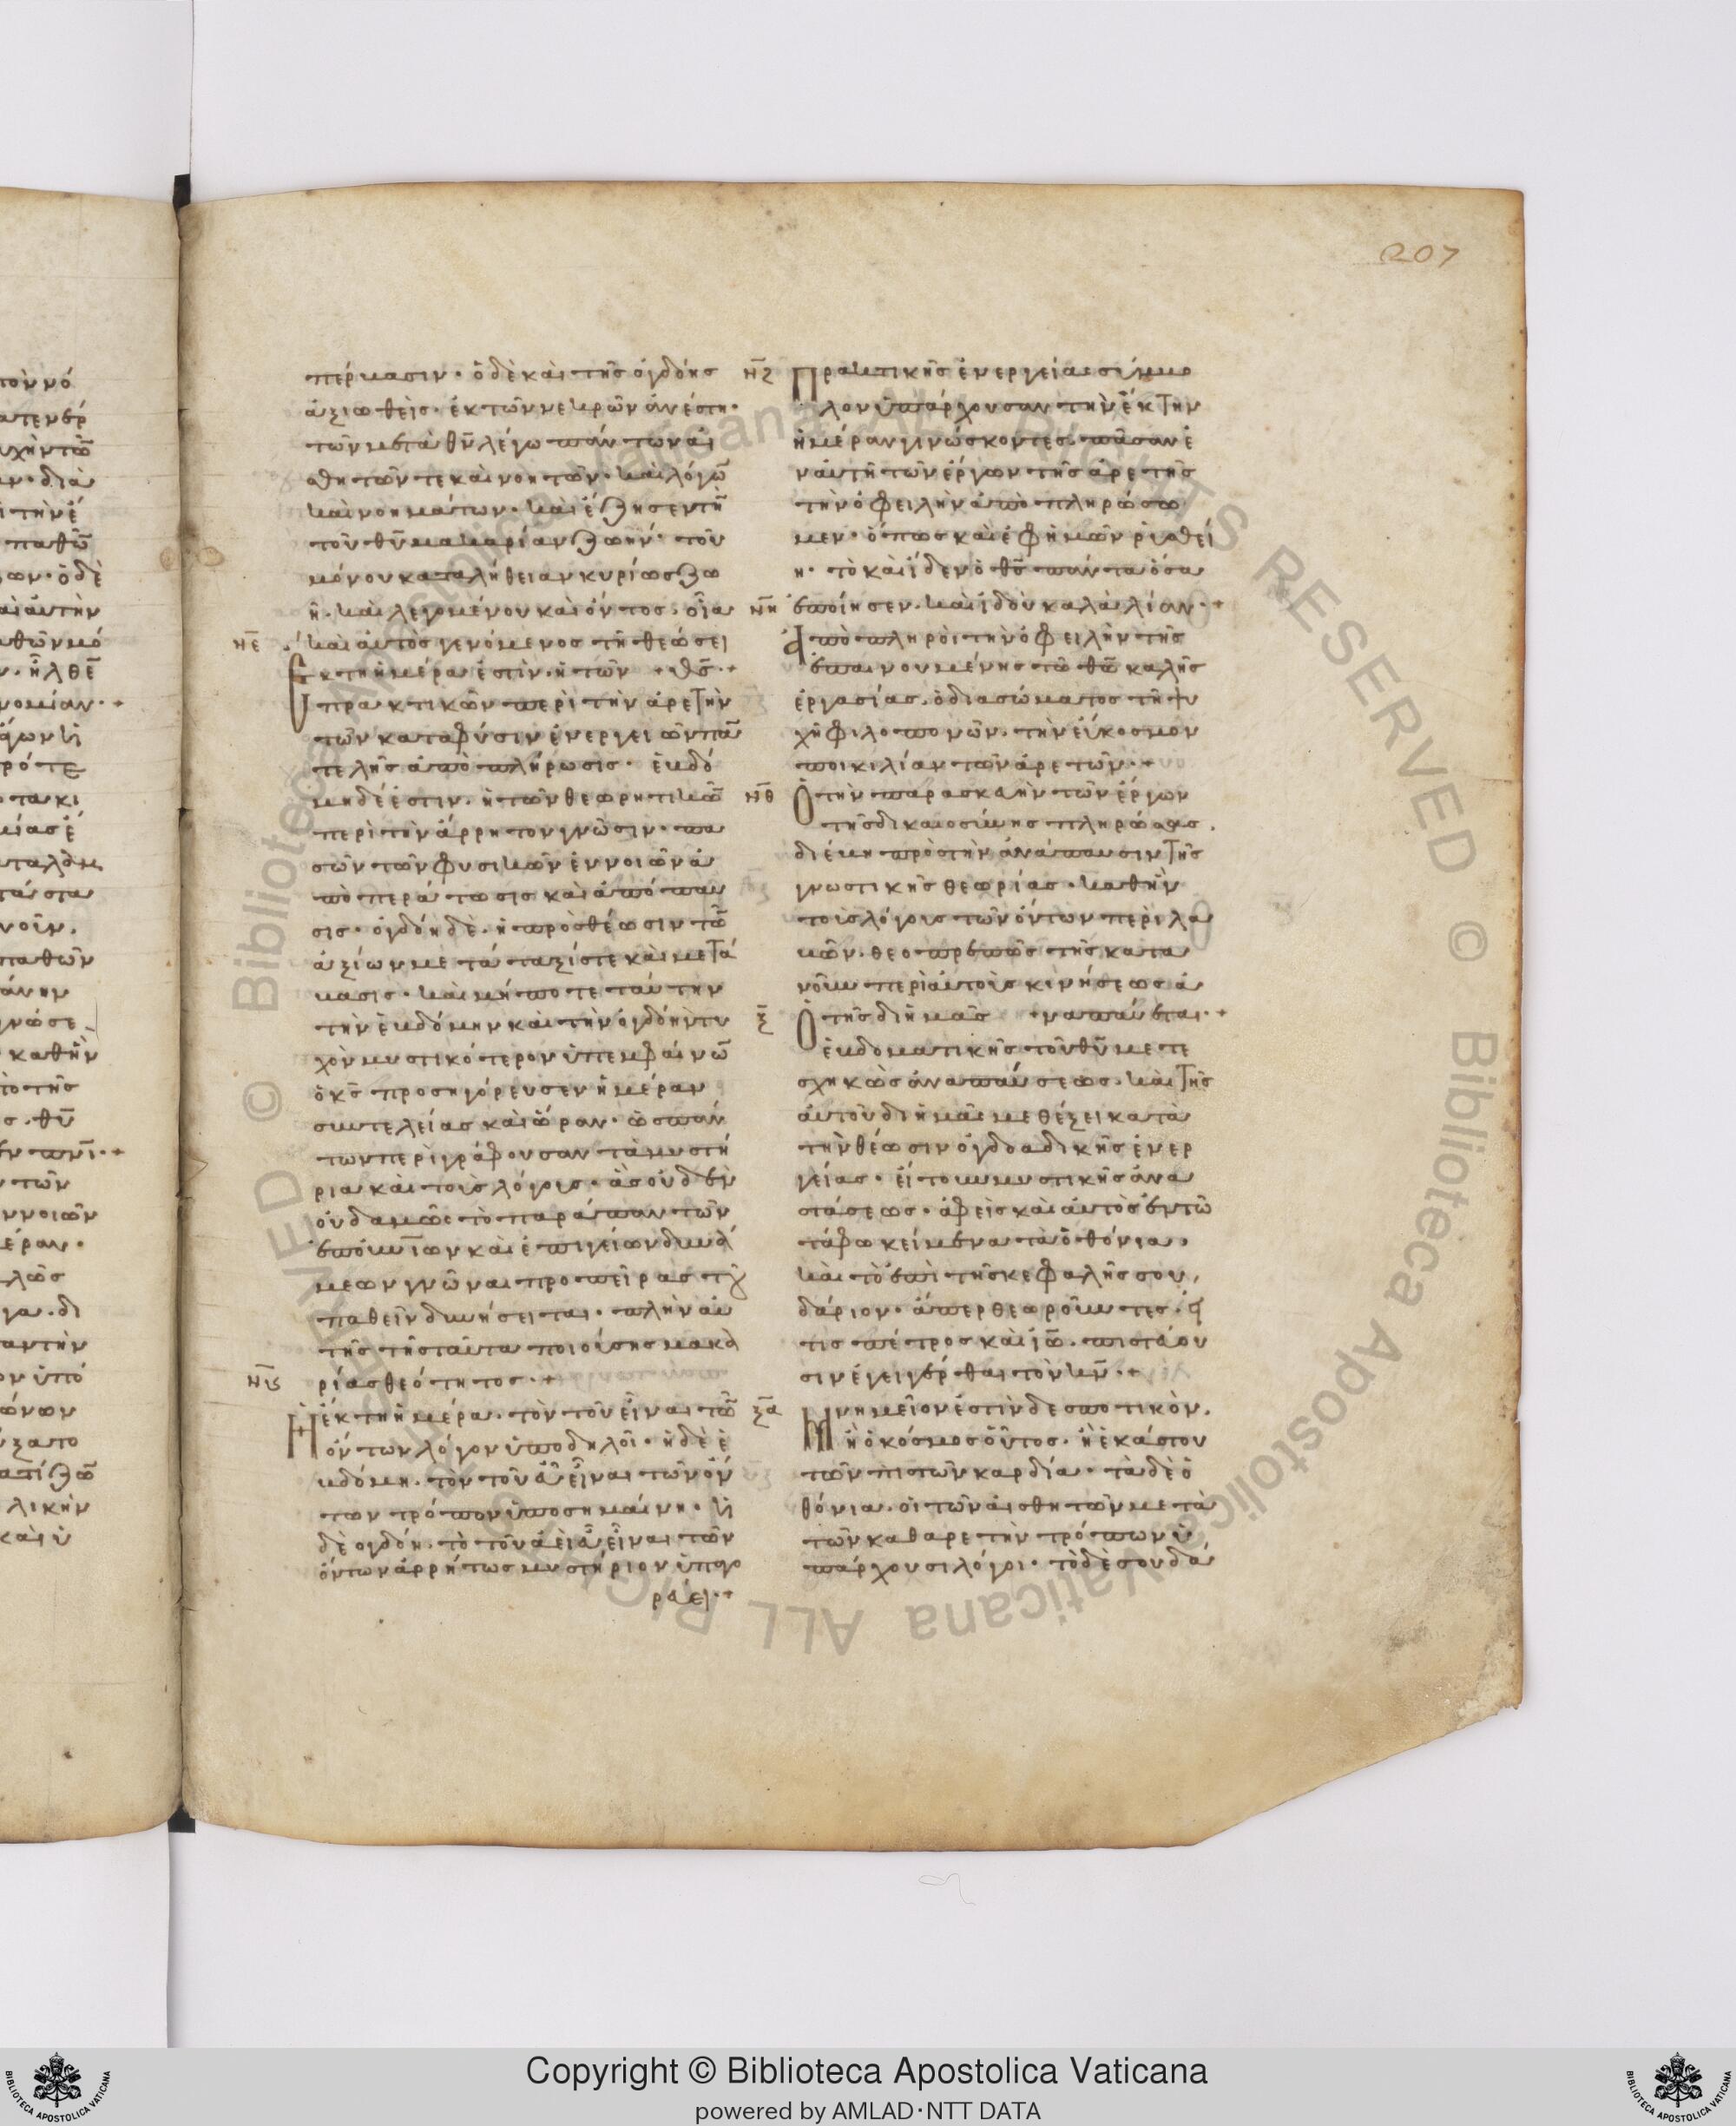 207
πέρμασιν· ὁ δὲ καὶ τῆς ὀγδόης
ἀξιωθεὶς· ἐκ τῶν νεκρῶν ἀνέστη·
τῶν μετὰ θν λέγω πάντων αἰ
σθητῶν τε καὶ νοητῶν· καὶ λόγω
καὶ νοημάτων· καὶ ἔζησεν τὴ
τοῦ θυ μακαρίαν ζωήν· τοῦ
μόνου καταλήθειαν κυρίως ζω
ῆ· καὶ λεγομένου καὶ ὄντος· οἷα
ΝΕ καὶ αὐτὸς γενόμενος τῆ θεώσει
Εκτη ἡμέρα ἐστὶν· ἡ τῶν + θς·+
πρακτικῶν περὶ τὴν ἀρετὴν
τῶν κατα φύσιν ἐνεργειῶν πα
τελὴς ἀποπλήρωσις· ἑβδό
μη δέ ἐστιν· ἡ τῶν θεωρητικῶ
περὶ τὴν ἄρρητον γνῶσιν· πα
σῶν τῶν φυσικῶν ἐννοιῶν ἀ
ποπεράτωσις καὶ ἀπόπαυ
σις· ὀγδόη δὲ· ἡ πρὸς θέωσιν τῶ
ἀξίων μετάταξίς τε καὶ μετά
βασις· καὶ μήποτε ταύτην
τὴν ἑβδόμην καὶ τὴν ὀγδόην τυ
χὸν μυστικότερον ὑπεμφαίνω
ὁ κς προσηγόρευσεν ἡμέραν
συντελείας καὶ ὥραν· ὡς πάν
των περιγράφουσαν τὰ μυστή
ρια καὶ τοὺς λόγους· ἃς οὐδεὶν
οὐδαμῶς τοπαράπαν τῶν
ἐπουνίων καὶ ἐπιγείων δυνά
μεων γνῶναι προ πείρας τῆς
παθεῖν δυνήσεται· πλὴν αὐ
τῆς τῆς ταῦτα ποιούσης μακα
ΝϚ ρίας θεότητος·+
Η ἕκτη ἡμέρα· τὸν τοῦ εἶναι τῶ
ὄντων λόγον ὑποδηλοῖ· ἡ δὲ ἑ
βδόμη· τὸν τοῦ εὖ εἶναι τῶν ὄν
των τρόπον ὑποσημαίνη· ἡ
δὲ ὀγδόη· τὸ τοῦ ἀεὶ εὖ εἶναι τῶν
ὄντων ἀρρήτως μυστήριον ὑπαγο
ρεύει·+
ΝΖ Πρακτικῆς ἐνεργείας σύμβο
λον ὑπάρχουσαν τὴν ἕκτην
ἡμέραν γινώσκοντες· πᾶσαν ἐ
ν αὐτῆ τῶν ἔργων τῆς ἀρετῆς
τὴν ὀφειλὴν ἀποπληρώσω
μεν· ὅπως καὶ ἐφ ἡμῶν ῥηθεί
η· τὸ καὶ ἴδεν ὁ θς πάντα ὅσα
ΝΗ ἐποίησεν· καὶ ἰδοὺ καλὰ λίαν·+
Αποπληροῖ τὴν ὀφειλὴν τῆς
ἐπαινουμένης τῶ θω καλῆς
ἐργασίας· ὁ δια σώματος τῆ ψυ
χῆ φιλοπονῶν· τὴν εὔκοσμον
ποικιλίαν τῶν ἀρετῶν·+
ΝΘ Ο τὴν παρασκευὴν τῶν ἔργων
τῆς δικαιοσύνης πληρώσας·
διέβη πρὸς τὴν ἀνάπαυσιν τῆς
γνωστικῆς θεωρίας· καθ ἣν
τοὺς λόγους τῶν ὄντων περιλα
βῶν· θεοπρεπῶς τῆς κατα
νοῦν περὶ αὐτοὺς κινήσεως ἀ
Ξ Ο τῆς δι ἡμᾶς + ναπαύεται·+
ἑβδοματικῆς τοῦ θυ μετε
σχηκὼς ἀναπαύσεως· καὶ τῆς
αὐτοῦ δι ἡμᾶς μεθέξει κατὰ
τὴν θέωσιν ὀγδοαδικῆς ἐνερ
γείας· εἴτουν μυστικῆς ἀνα
στάσεως· ἀφεὶς καὶ αὐτὸς ἐν τῶ
τάφω κείμενα τὰ ὀθόνια·
καὶ τὸ ἐπὶ τῆς κεφαλῆς σου
δάριον· ἅπερ θεωροῦντες· εἴ
τις πέτρος καὶ ἰω· πιστεύου
σιν ἐγειγέρθαι τὸν κν·+
ΞΑ Μνημεῖον ἐστὶν δεσποτικὸν·
ἢ ὁ κόσμος οὗτος· ἢ ἑκάστου
τῶν πιστῶν καρδία· τὰ δὲ ὀ
θόνια· οἱ τῶν αἰσθητῶν μετὰ
τῶν καθ αρετὴν τρόπων ὑ
πάρχουσι λόγοι· τὸ δὲ σουδά
Copyright © Biblioteca Apostolica Vaticana
powered by AMLAD·NTT DATA
© Biblioteca Apostolica Vaticana ALL RIGHTS RESERVED
BIBLIOTECA APOSTOLICA VATICANA
BIBLIOTECA APOSTOLICA VATICANA